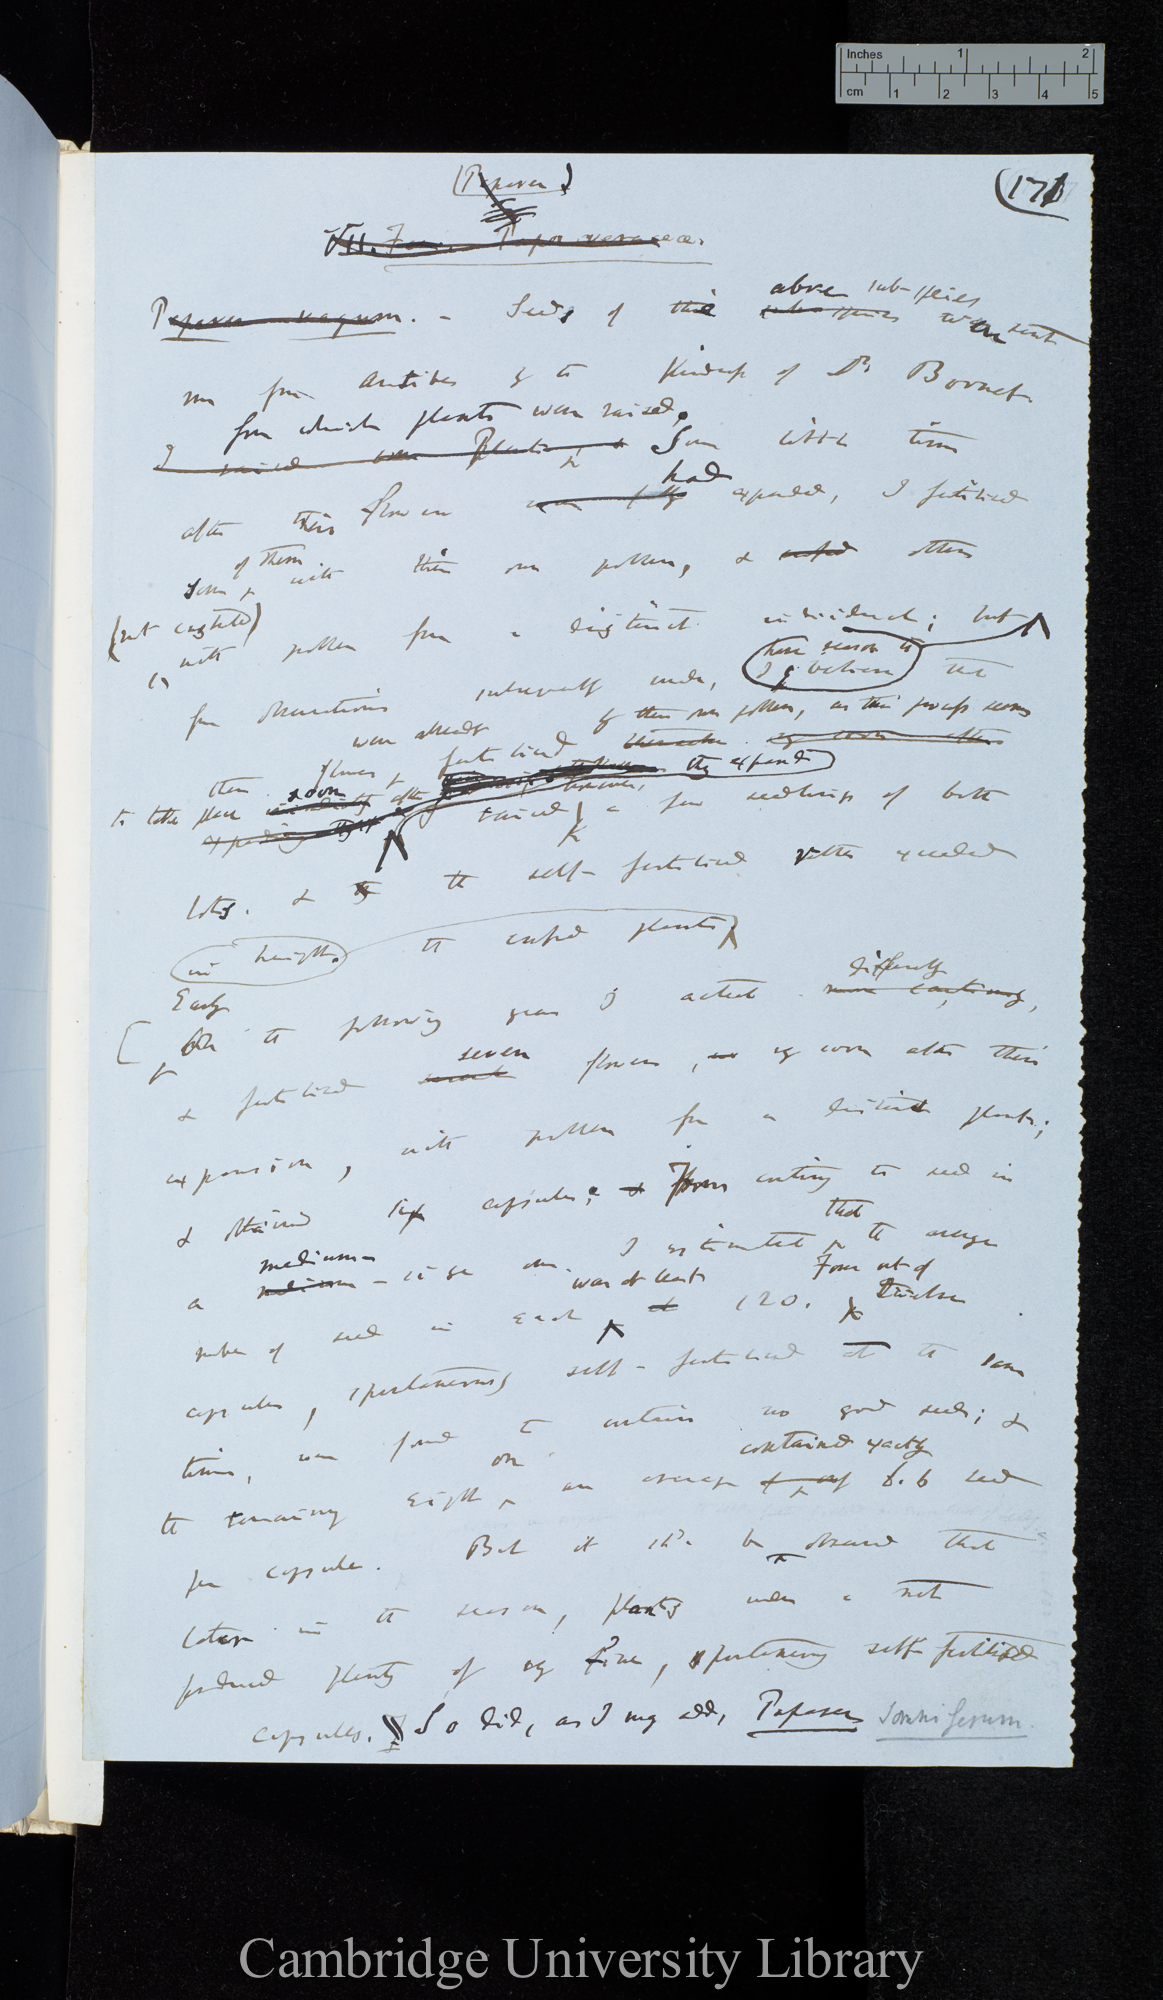 Inches 1 2
cm 1 2 3 4 5
(Papaver)
(171
VII. Fam. Papaveraceae.
above sub-species
Papaver vagum. - Seeds of this sub-species were sent
me from Antibes by the kindness of Dr Bornet.
from which plants were raised.
I raised some Plants, & Some little time
had
after their flowers were fully expanded, I fertilised
of them
some with their own pollen, & crossed others
(not castrated)
with pollen from a distinct individual; but
have reason to
from observations subsequently made, I believe that
of their own pollen, as this process seems
were already
then flowers fertilised
soon
to take place immediately after they expand
I raised, however, a few seedlings of both
lots. & the self-fertilised rather exceeded
in height. the crossed plants
Early differently
[in the following year I acted more cautiously,
seven
& fertilised flowers, very soon after their
expansion, with pollen from a distinct plant;
& obtained six capsules; & From counting the seed in
medium- that
a medium-size one I estimated the average
was at least Four out of
number of seed in each 120. twelve
capsules, spontaneously self-fertilised at the same
time, were found to contain no good seeds; &
on contained exactly
the remaining eight an average of 6.6 seed
per capsule. But it shd. be observed that
later in the season, plants under a net
produced plenty of very fine, spontaneously self-fertilised
capsules. So did, as I may add, Papaver somniferum.
Cambridge University Library